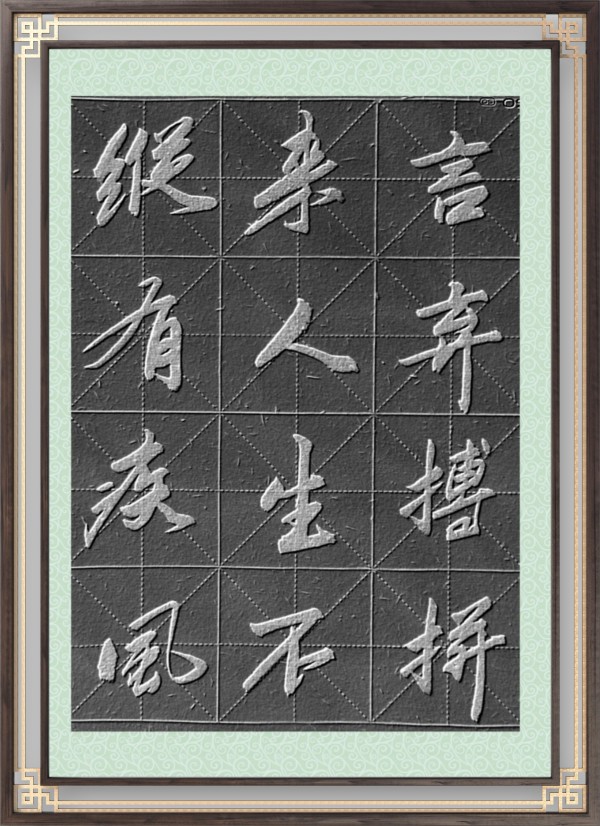 縱有疾風
来人生不
言弃搏拼